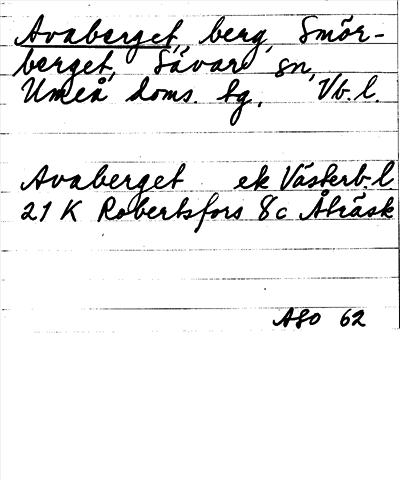 Avaberget, berg, Smör-
berget, Sävar sn,
Umeå doms. tg, Vb. l.
Avaberget ek Västerb. l
21 K Robertsfors 8c Åträsk
ASO 62